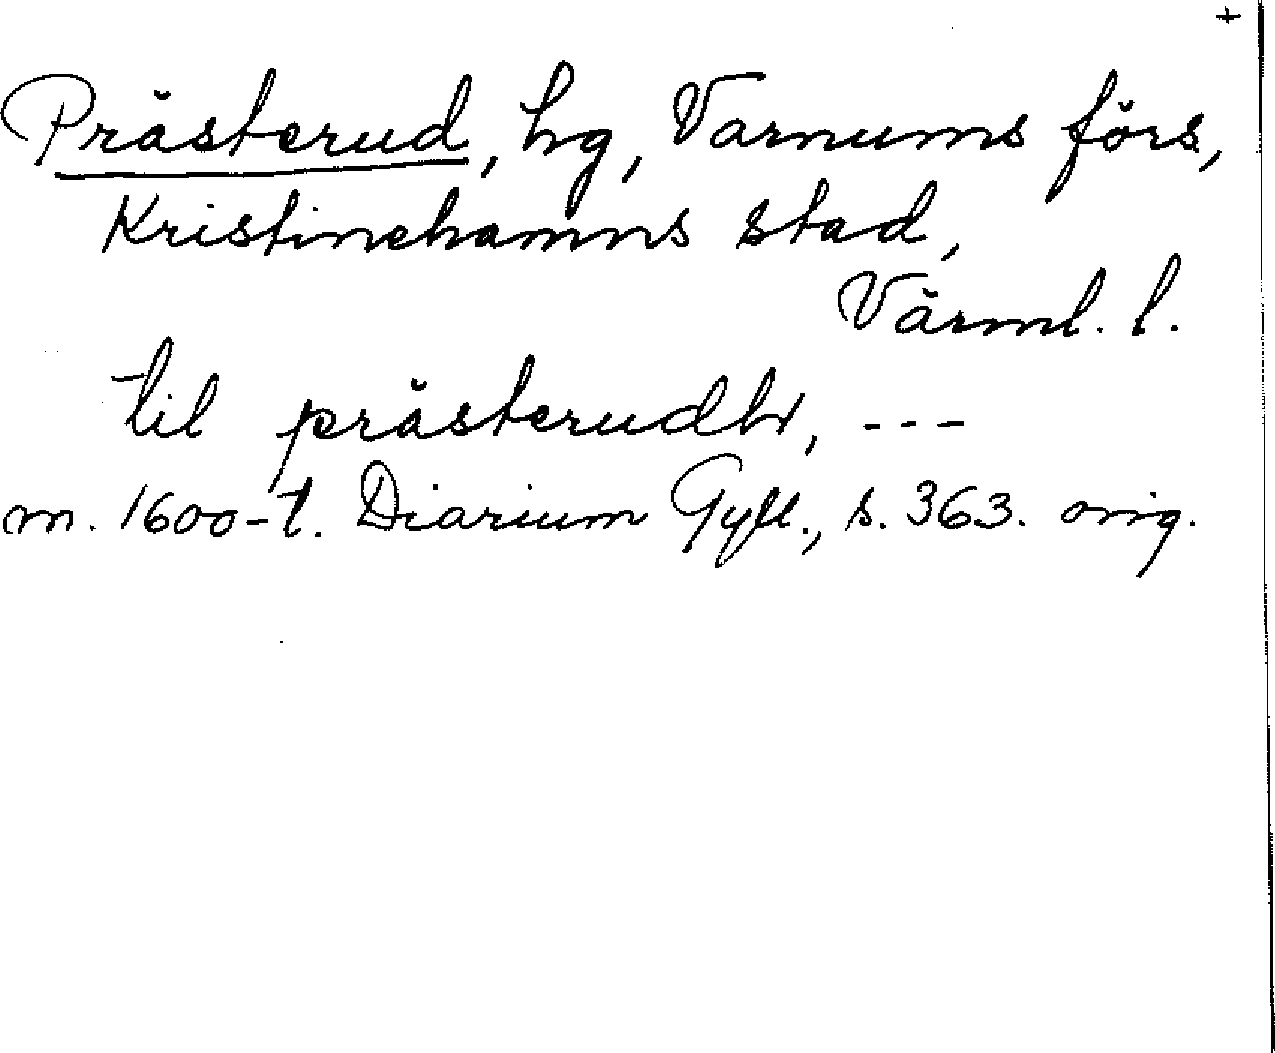 +
Prästerud, hg, Varnums förs.,
Kristinehamns stad,
Värml. l.
til prästerudhr, ---
m. 1600-t. Diarium Gyll., s. 363. orig.